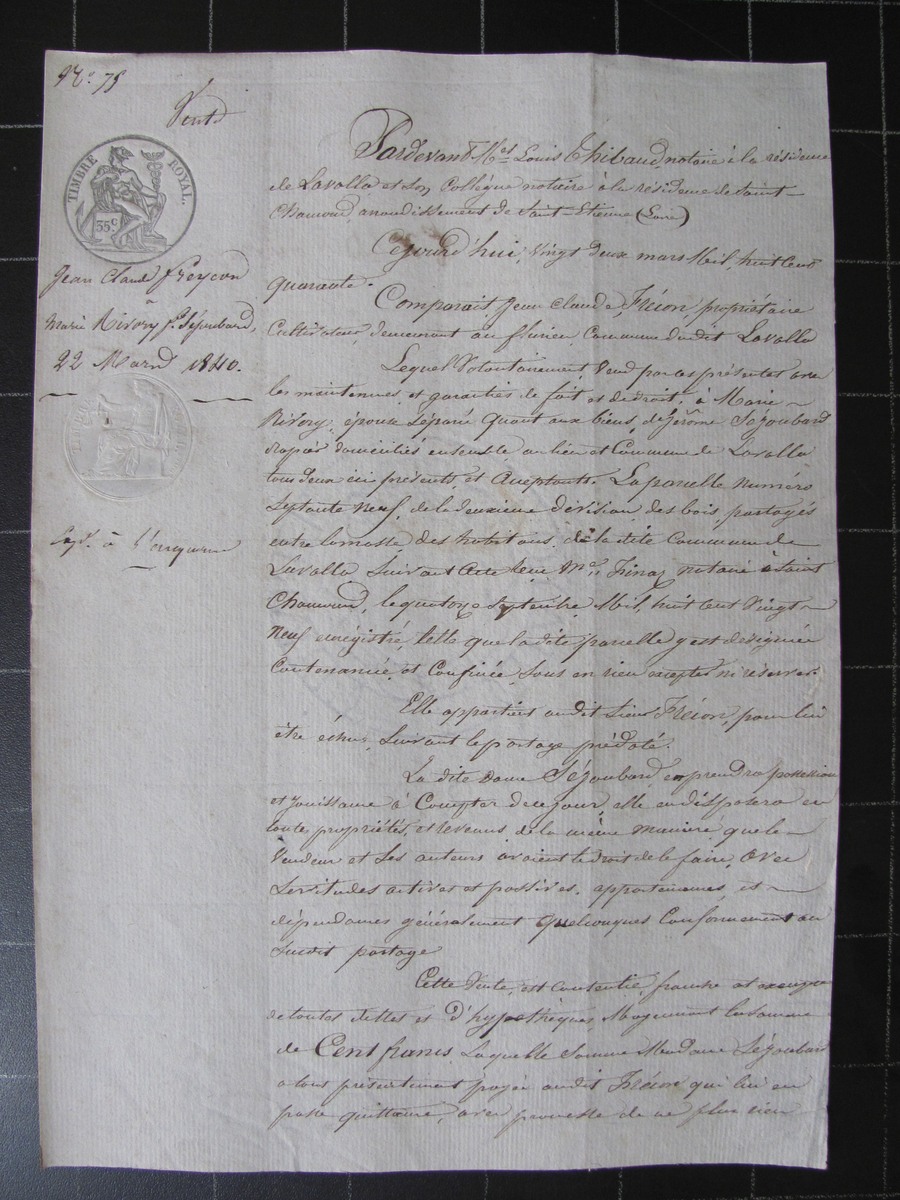 N.° 75
Vente
TIMBRE ROYAL.
35 c
Jean Claude Freycon
à
Marie Rivory f.e Séjoubard,
22 Mars 1840.
Exp. à l'acquereur
Pardevant M.es Louis Thibaud, notaire à la résidence
de Lavalla et son Collégue notaire à la résidence de Saint
Chamond arrondissement de Saint-Etienne (Loire)
Cejourd'hui, Vingt deux mars Mil, huit Cent
quarante.
Comparait Jean Claude Fréçon, propriétaire
Cultivateur, demeurant au Commune dudit Lavalla
Lequel Volontairement Vend par ces présentes avec
les maintenues et garanties de fait et de droit, à Marie
Rivory, épouse séparée quant aux biens, de Jérôme Séjoubard
drapier domiciliés ensemble, au lieu et Commune de Lavalla
tous deux ici présents et Aceptants. La parcelle numéro
Septante Neuf, de la deuxieme division des bois partagés
entre la masse des habitans de la dite Commune de
Lavalla Suivant Acte reçu M.e Finaz notaire à Saint
Chamond, le quatorze Septembre Mil, huit Cent Vingt
Neuf enrégistré, telle que la dite parcelle y est désignée
Contenancée et Confinée, Sans en rien excepter ni réserver.
Elle appartient audit Sieur Fréçon, pour lui
être échue, Suivant le partage prédaté.
La dite Dame Séjoubard, en prendra possession
et jouissance à Compter de ce jour, elle en disposera en
toute propriétés, et revenus de la même maniere que le
Vendeur et Ses auteurs avaient le droit de le faire, Avec
Servitudes actives et passives, appartenances et
dépendances généralement quelconques Conformement au
Susdit partage
Cette Vente, est Consentie, franche et exempte
de toutes dettes et D'hypothèques, Moyennant la Somme
de Cent francs Laquelle Somme Madame Séjoubard
a tout présentement payée audit Fréçon qui lui en
passe quittance, avec promesse de ne plus rien